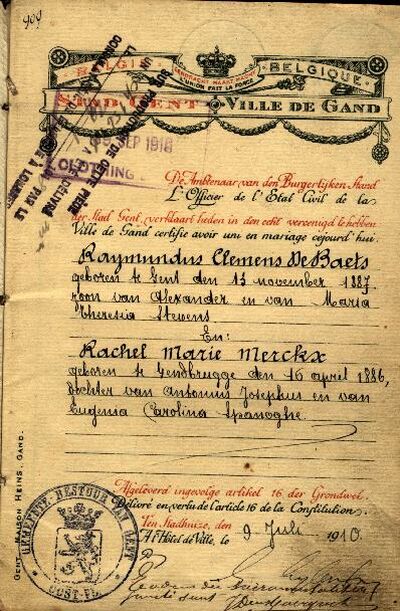 909
BELGIË
EENDRACHT MAAKT MACHT
L'UNION FAIT LA FORCE
BELGIQUE
STAD GENT
VILLE DE GAND
SEP 1918
CLOTHING
De Ambtenaar van den Burgerlijken Stand
L'Officier de l'Etat Civil de la
der Stad Gent, verklaart heden in den echt vereenigd te hebben
Ville de Gand certifie avoir uni en mariage cejourd'hui:
Raymundus Clemens De Baets
geboren te Gent den 13 november 1887.
zoon van Alexander en van Maria
Theresia Stevens
En:
Rachel Marie Merckx
geboren te Gendbrugge den 16 april 1886,
dochter van Antonius Josephus en van
Eugenia Carolina Spanoghe.
Afgeleverd ingevolge artikel 16 der Grondwet.
Délivré en vertu de l'article 16 de la Constitution.
Ten Stadhuize, den
A l'Hôtel de Ville, le
9 Juli 1910.
GEMEENTE-BESTUUR VAN GENT
OOST-FL.
GENT MAISON HEINS, GAND.